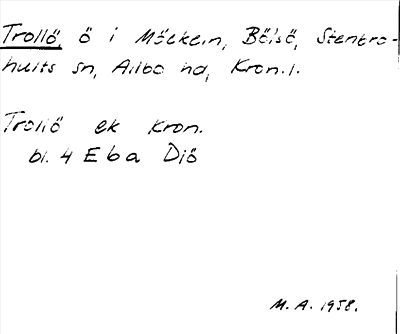 Trollö, ö i Möckeln, Bölsö, Stenbro-
hults sn, Allbo hd, Kron. l.
Trollö ek Kron.
bl. 4 Eba Diö
M. A. 1958.